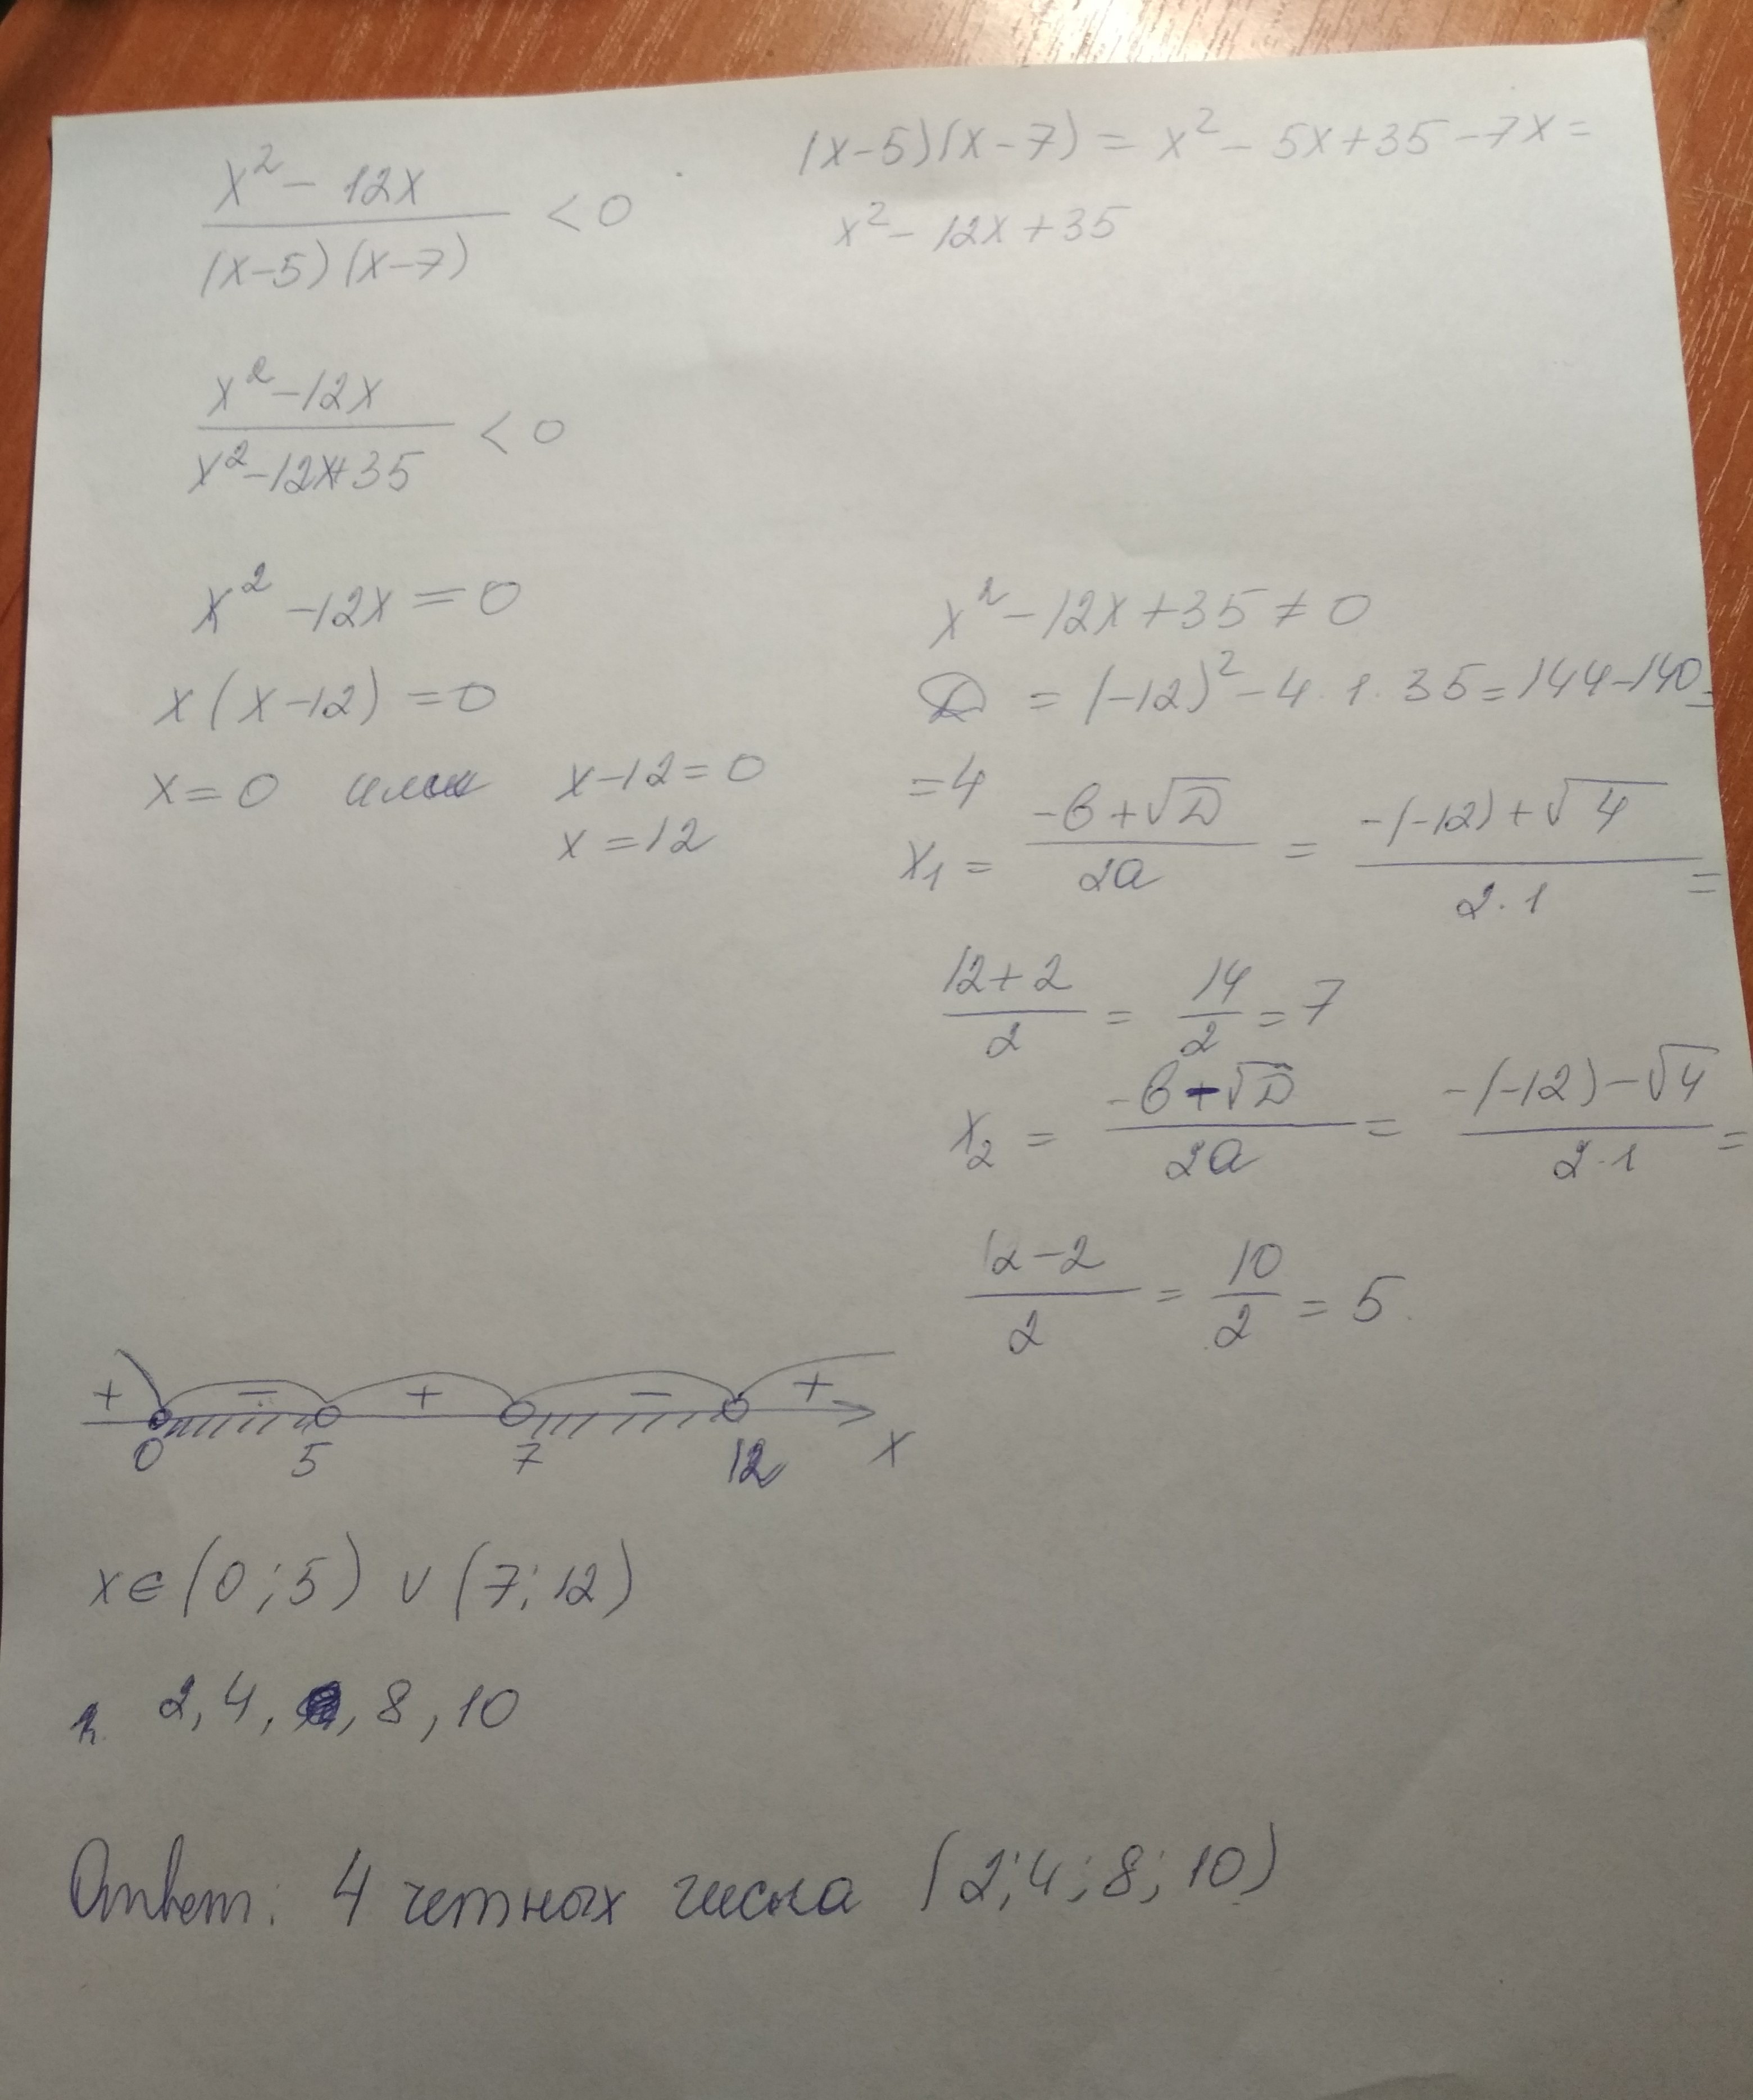 x² - 12x / (x-5)(x-7) < 0
(x-5)(x-7) = x² - 5x + 35 - 7x =
x² - 12x + 35
x² - 12x / x² - 12x + 35 < 0
x² - 12x = 0
x(x-12) = 0
x = 0 или x - 12 = 0
x = 12
x² - 12x + 35 ≠ 0
D = (-12)² - 4·1·35 = 144 - 140 =
= 4
x₁ = -b + √D / 2a = -(-12) + √4 / 2·1 =
12 + 2 / 2 = 14 / 2 = 7
x₂ = -b - √D / 2a = -(-12) - √4 / 2·1 =
12 - 2 / 2 = 10 / 2 = 5
+ - + - +
0 5 7 12 x
x ∈ (0; 5) ∪ (7; 12)
2, 4, , 8, 10
Ответ: 4 четных числа (2; 4; 8; 10)